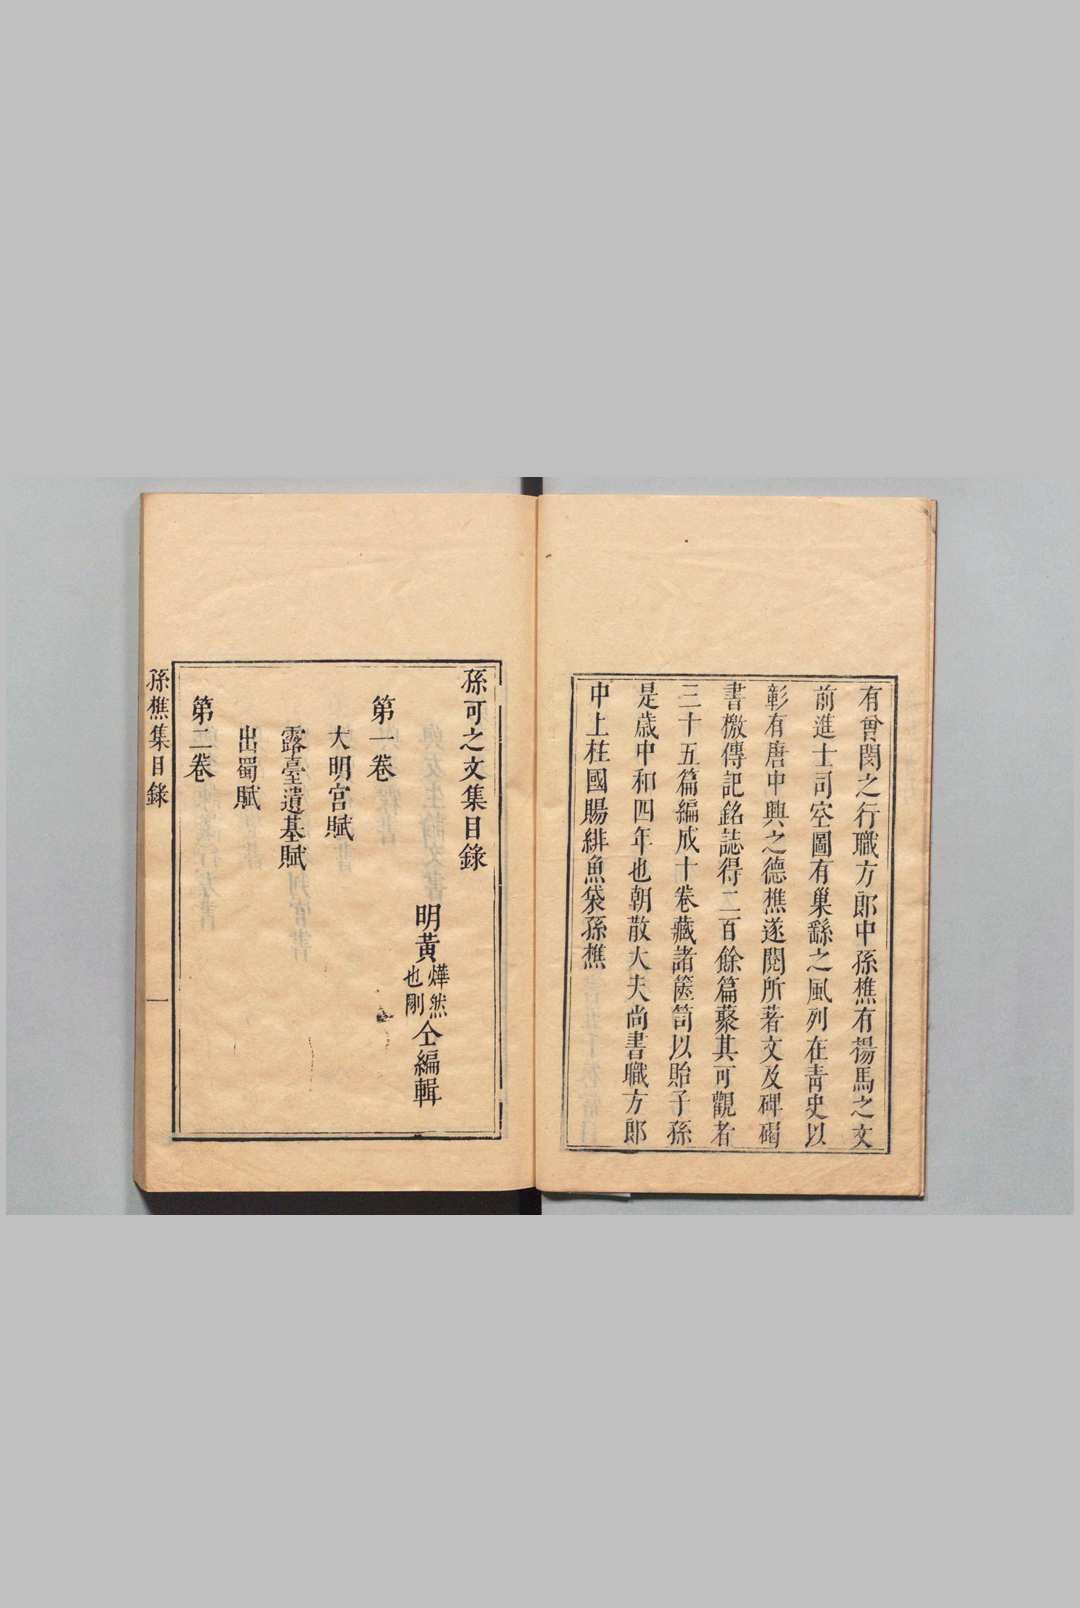 有曾閔之行職方郎中孫樵有揚馬之文
前進士司空圖有巢繇之風列在青史以
彰有唐中興之德樵遂閱所著文及碑碣
書檄傳記銘誌得二百餘篇藂其可觀者
三十五篇編成十卷藏諸篋笥以貽子孫
是歲中和四年也朝散大夫尚書職方郎
中上柱國賜緋魚袋孫樵
孫可之文集目錄
明黃燁然也剛仝編輯
第一卷
大明宮賦
露臺遺基賦
出蜀賦
第二卷
孫樵集目錄
一